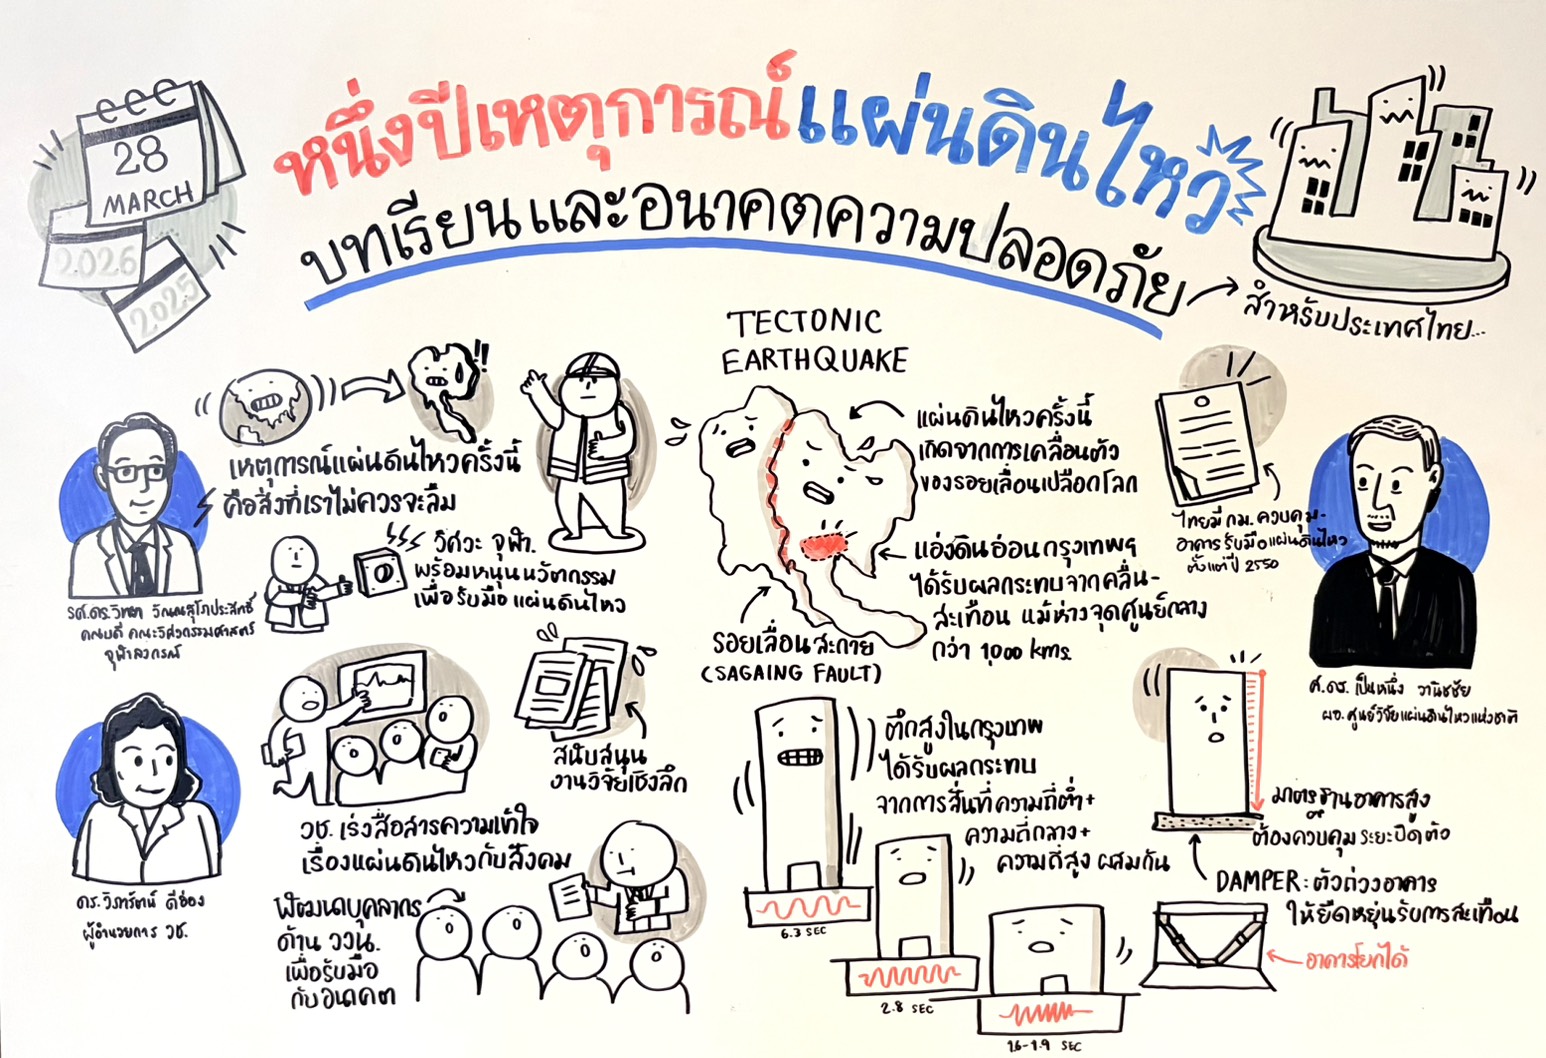 28
MARCH
2026
2025
หนึ่งปีเหตุการณ์แผ่นดินไหว
บทเรียนและอนาคตความปลอดภัย
สำหรับประเทศไทย...
!!
เหตุการณ์แผ่นดินไหวครั้งนี้
คือสิ่งที่เราไม่ควรจะลืม
วิศวะ จุฬา.
พร้อมหนุนนวัตกรรม
เพื่อรับมือแผ่นดินไหว
รศ.ดร.วิทยา วัณณสุโภประสิทธิ์
คณบดี คณะวิศวกรรมศาสตร์
จุฬาลงกรณ์
สนับสนุน
งานวิจัยเชิงลึก
วช. เร่งสื่อสารความเข้าใจ
เรื่องแผ่นดินไหวกับสังคม
ดร.วิภารัตน์ ดีอ่อง
ผู้อำนวยการ วช.
พัฒนาบุคลากร
ด้าน ววน.
เพื่อรับมือ
กับอนาคต
TECTONIC
EARTHQUAKE
แผ่นดินไหวครั้งนี้
เกิดจากการเคลื่อนตัว
ของรอยเลื่อนเปลือกโลก
แอ่งดินอ่อนกรุงเทพฯ
ได้รับผลกระทบจากคลื่น-
สะเทือน แม้ห่างจุดศูนย์กลาง
กว่า 1,000 kms.
รอยเลื่อนสะกาย
(SAGAING FAULT)
ตึกสูงในกรุงเทพ
ได้รับผลกระทบ
จากการสั่นที่ความถี่ต่ำ+
ความถี่กลาง+
ความถี่สูง ผสมกัน
6.3 SEC
2.8 SEC
1.6-1.9 SEC
ไทยมี กม. ควบคุม-
อาคารรับมือแผ่นดินไหว
ตั้งแต่ปี 2550
ศ.ดร. เป็นหนึ่ง วานิชชัย
ผอ. ศูนย์วิจัยแผ่นดินไหวแห่งชาติ
มาตรฐานอาคารสูง
ต้องควบคุมระยะบิดตัว
DAMPER : ตัวถ่วงอาคาร
ให้ยืดหยุ่นรับการสะเทือน
อาคารโยกได้